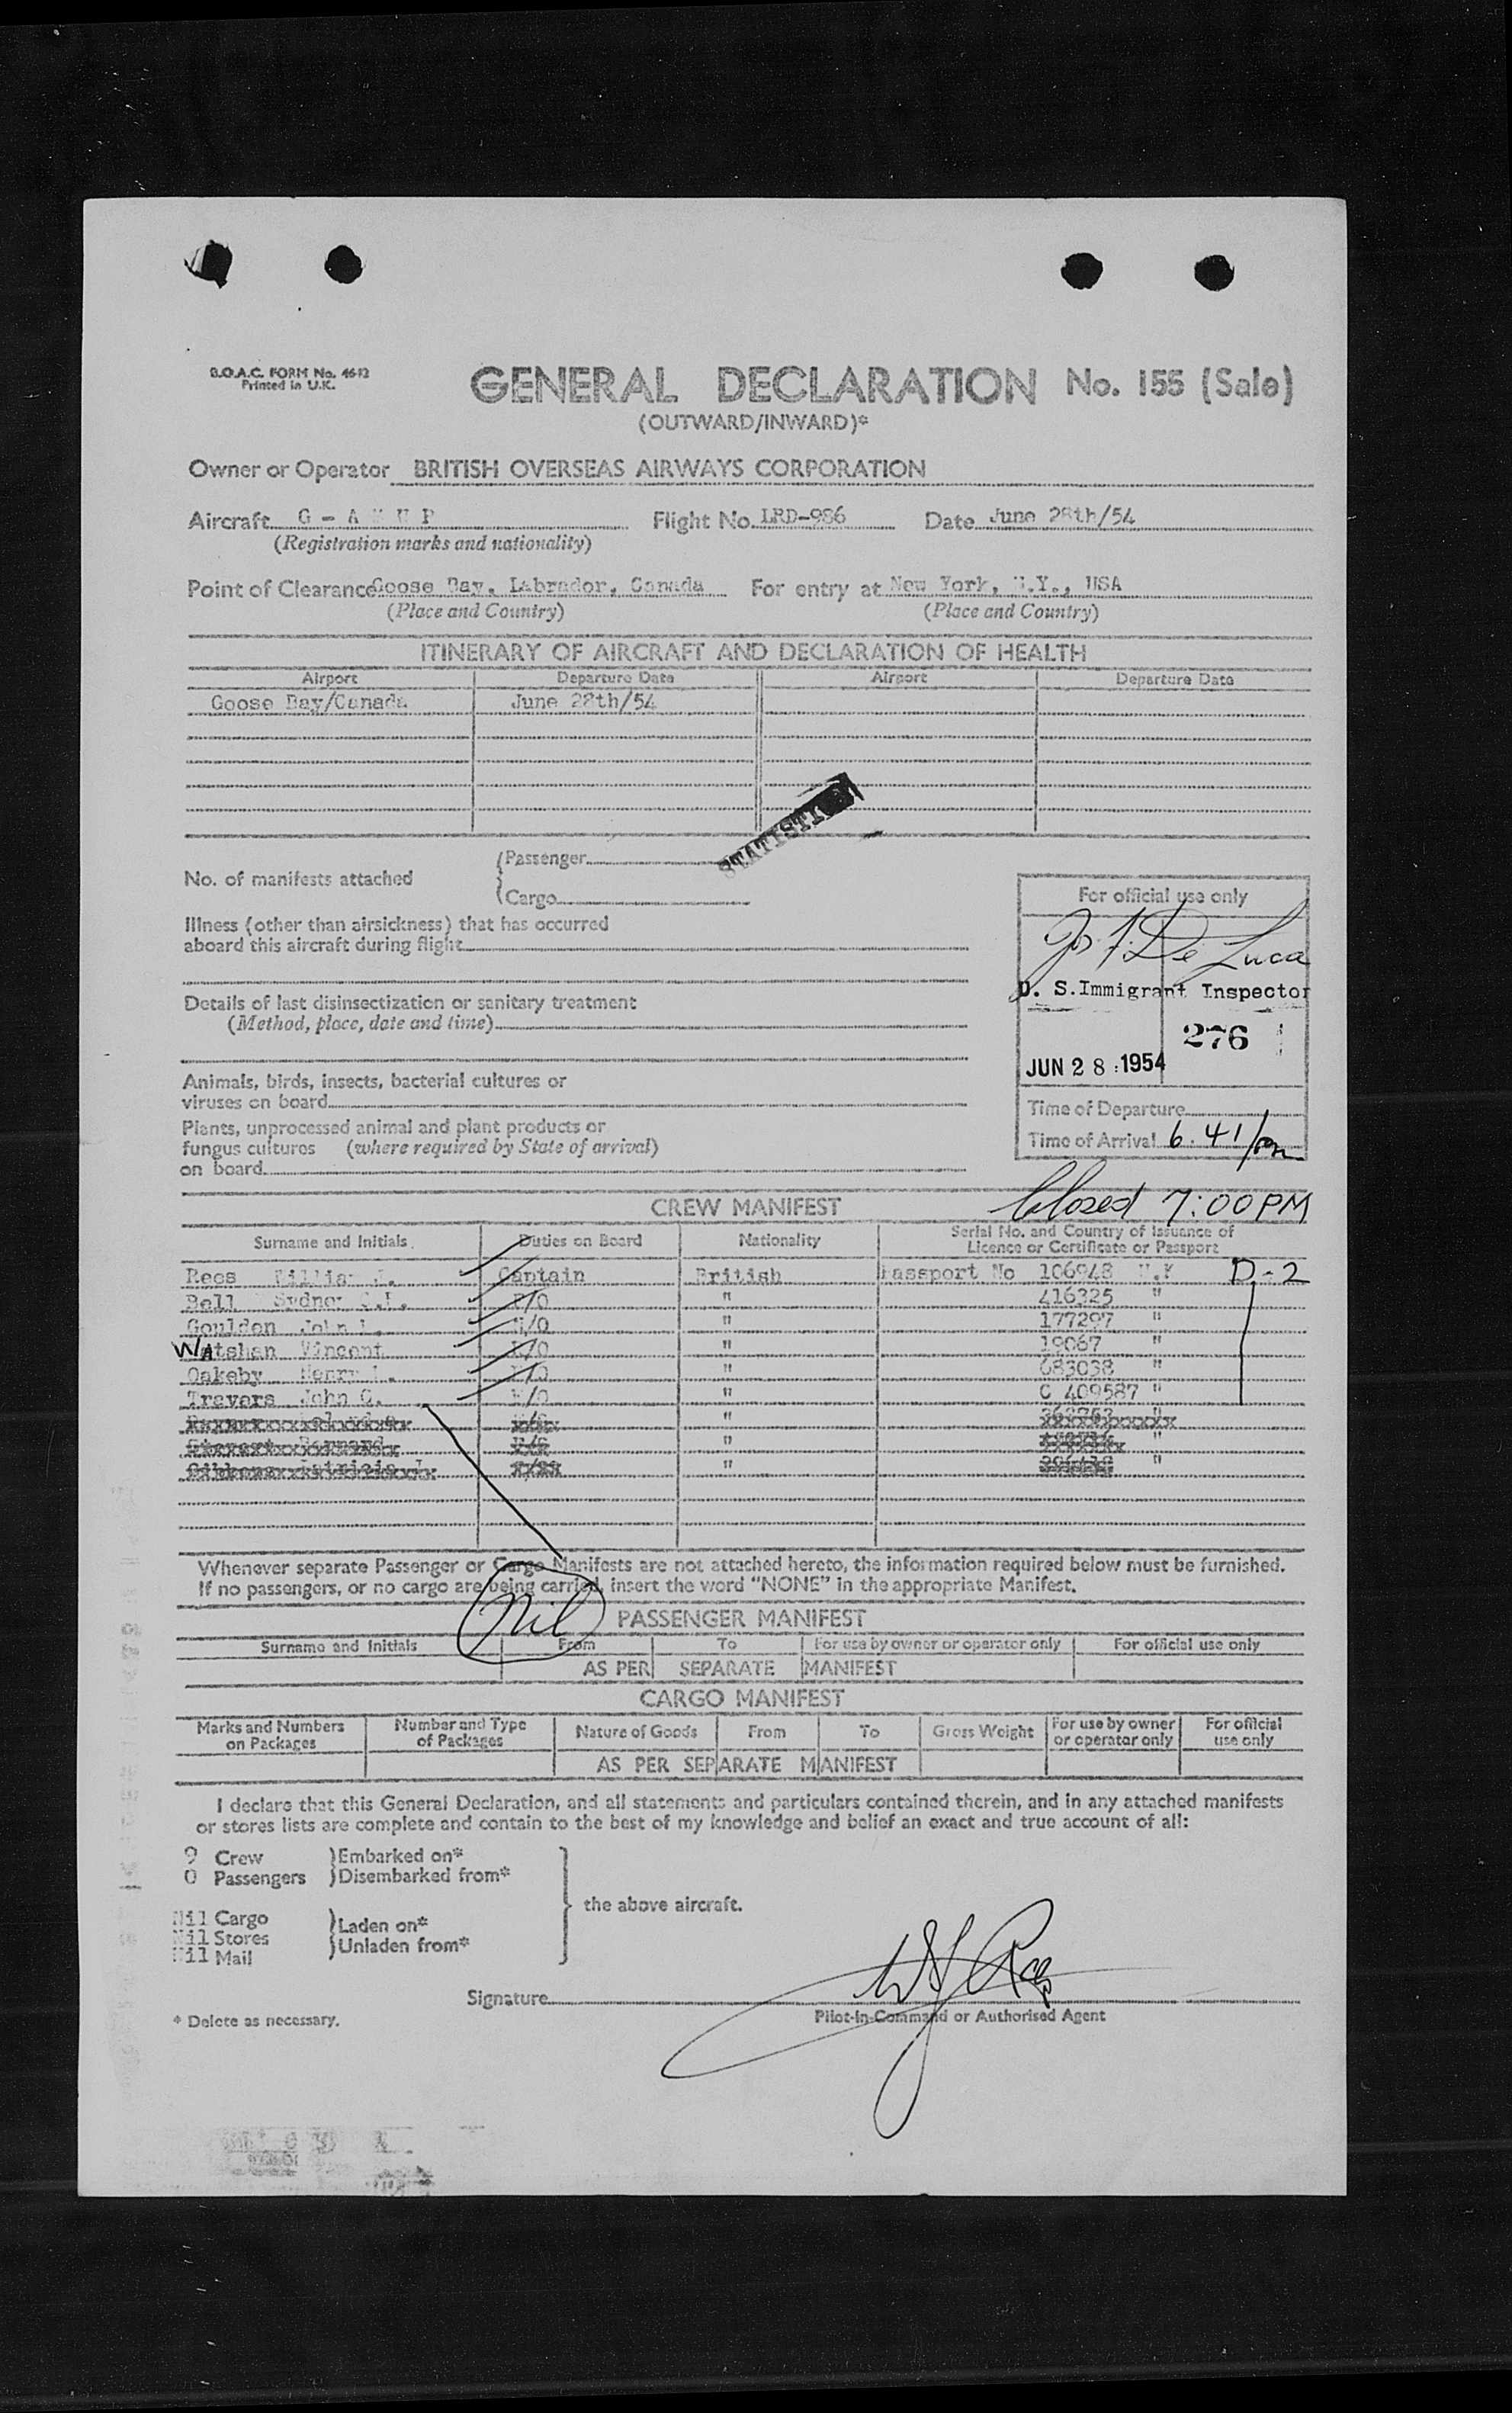 B.O.A.C. FORM No. 4642
Printed in U.K.
GENERAL DECLARATION No. 155 (Sale)
(OUTWARD/INWARD)*
Owner or Operator BRITISH OVERSEAS AIRWAYS CORPORATION
Aircraft G - A
Flight No. LRD-986 Date June 28th/54
(Registration marks and nationality)
Point of Clearance Goose Bay, Labrador, Canada For entry at New York, N.Y., USA
(Place and Country) (Place and Country)
ITINERARY OF AIRCRAFT AND DECLARATION OF HEALTH
Airport Departure Date Airport Departure Date
Goose Bay/Canada June 28th/54
STATISTI
No. of manifests attached
Passenger
Cargo
Illness (other than airsickness) that has occurred
aboard this aircraft during flight
Details of last disinsectization or sanitary treatment
(Method, place, date and time)
Animals, birds, insects, bacterial cultures or
viruses on board
Plants, unprocessed animal and plant products or
fungus cultures (where required by State of arrival)
on board
For official use only
Jos. F. De Luca
U. S. Immigrant Inspector
276
JUN 28 1954
Time of Departure
Time of Arrival 6.41/pm
Closed 7:00 PM
CREW MANIFEST
Surname and Initials Duties on Board Nationality Serial No. and Country of Issuance of
Licence or Certificate or Passport
Rees William J. Captain British Passport No 106948 U.K D-2
Bell Sydney /O " 416325 "
Goulden John L. /O " 177297 "
Watshan Vincent /O " 19067 "
Oakeby Henry /O " 683038 "
Trevers John G. /O " C 409587 "
" "
" "
" "
Whenever separate Passenger or Cargo Manifests are not attached hereto, the information required below must be furnished.
If no passengers, or no cargo are being carried, insert the word "NONE" in the appropriate Manifest.
Nil
PASSENGER MANIFEST
Surname and Initials From To For use by owner or operator only For official use only
AS PER SEPARATE MANIFEST
CARGO MANIFEST
Marks and Numbers on Packages Number and Type of Packages Nature of Goods From To Gross Weight For use by owner or operator only For official use only
AS PER SEPARATE MANIFEST
I declare that this General Declaration, and all statements and particulars contained therein, and in any attached manifests
or stores lists are complete and contain to the best of my knowledge and belief an exact and true account of all:
9 Crew Embarked on*
0 Passengers Disembarked from*
the above aircraft.
Nil Cargo Laden on*
Nil Stores
Nil Mail Unladen from*
Signature WJ Rees
Pilot-in-Command or Authorised Agent
* Delete as necessary.